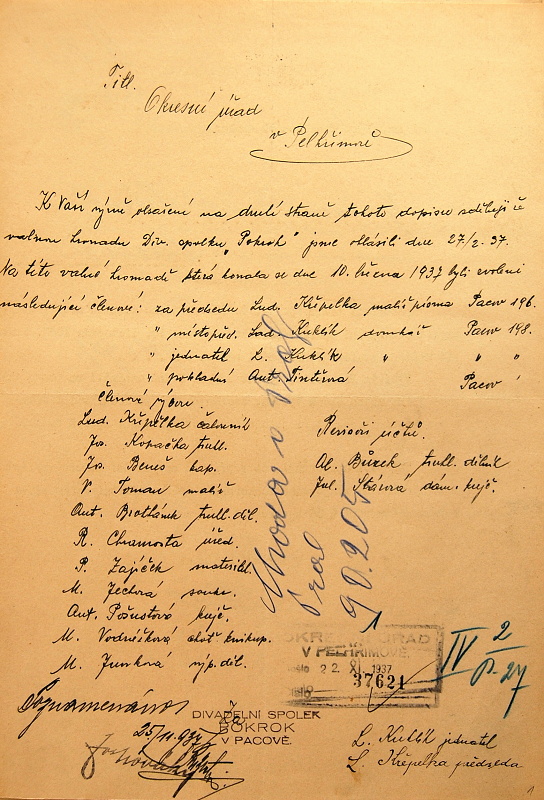 Titl.
Okresní úřad
v Pelhřimově
K Vaší výzvě obsažené na druhé straně tohoto dopisu sděluji že
valnou hromadu Div. spolku „Pokrok" jsme ohlásili dne 27/2. 37.
Na této valné hromadě která konala se dne 10. března 1937 byli zvoleni
následující členové: za předsedu Lud. Křepelka malíř písma Pacov 196.
„ místopřed. Lad. Kuklík domkář Pacov 198.
„ jednatel L. Kuklík „ „ „
„ pokladní Ant. Pacov
Členové výboru
Lud. Křepelka čalouník
Jos. Kopačka truhl.
Jos. Beneš
V. Toman malíř
Ant. truhl. díl.
R. Chramosta úřed.
P. Zajíček
M. Jechová soukr.
Ant. Požustová krejč.
M. Vodničková choť knihkup.
M. Junková
Revisoři účtů.
Al. Bůzek truhl. dělník
Jul. dám. krejč.
Shoda v
90.205
1
OKRESNÍ ÚŘAD
V PELHŘIMOVĚ
22. XI. 1937
37621
IV 2
27
Poznamenáno
25/11. 937
za
DIVADELNÍ SPOLEK
POKROK
V PACOVĚ.
L. Kuklík jednatel
L. Křepelka předseda
1